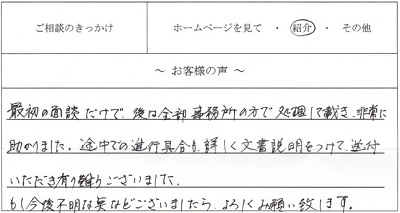 ご相談のきっかけ
ホームページを見て ・ 紹介 ・ その他
～ お客様の声 ～
最初の面談だけで、後は全部事務所の方で処理して戴き、非常に
助かりました。途中での進行具合も、詳しく文書説明をつけて、送付
いただき有り難うございました。
もし今後不明な点などございましたら、よろしくお願い致します。